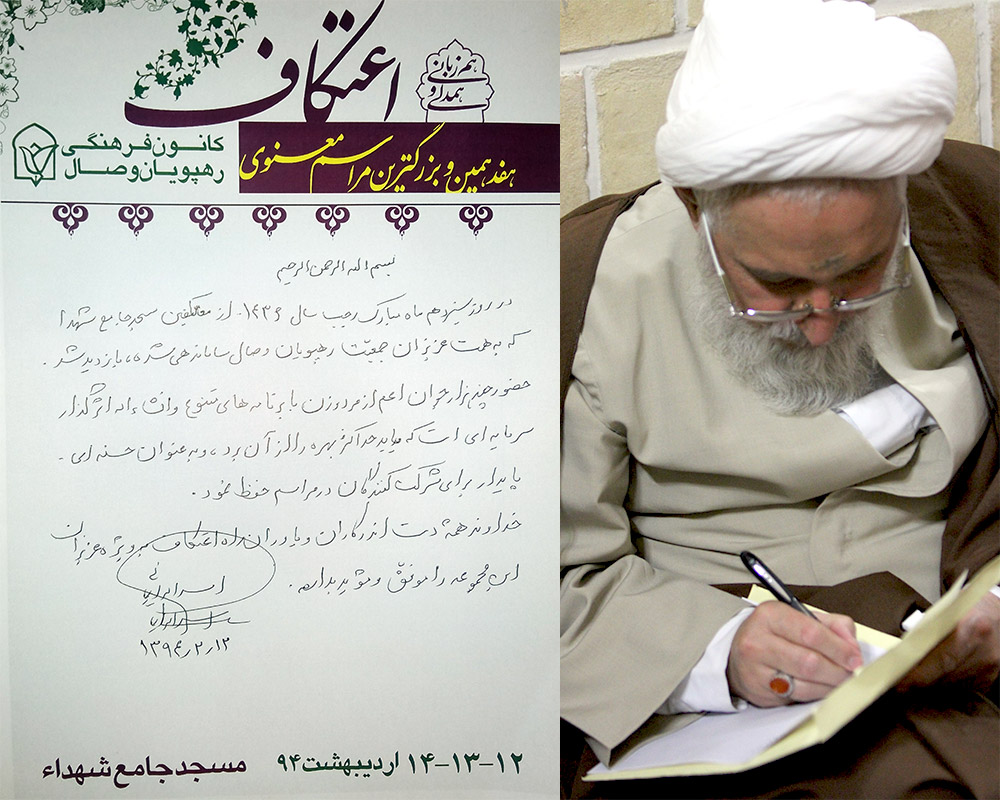 اعتکاف
هم زبانی
همدلی و
هفدهمین و بزرگترین مراسم معنوی
کانون فرهنگی
رهپویان وصال
بسم الله الرحمن الرحیم
در روز سیزدهم ماه مبارک رجب سال ۱۴۳۶ از معتکفین مسجد جامع شهدا
که به همت عزیزان جمعیت رهپویان وصال ساماندهی شده، بازدید شد.
حضور چند هزار جوان اعم از مرد و زن با برنامه‌های متنوع و انشاءاله اثرگذار
سرمایه‌ای است که باید حداکثر بهره را از آن برد، و به عنوان حسنه‌ای
پایدار برای شرکت‌کنندگان در مراسم حفظ نمود.
خداوند همهٔ دست‌اندرکاران و یاوران اعتکاف به ویژه عزیزان
این مجموعه را موفق و مؤید بدارد.
۱۳۹۴٫۲٫۱۲
۱۲-۱۳-۱۴ اردیبهشت ۹۴ مسجد جامع شهداء